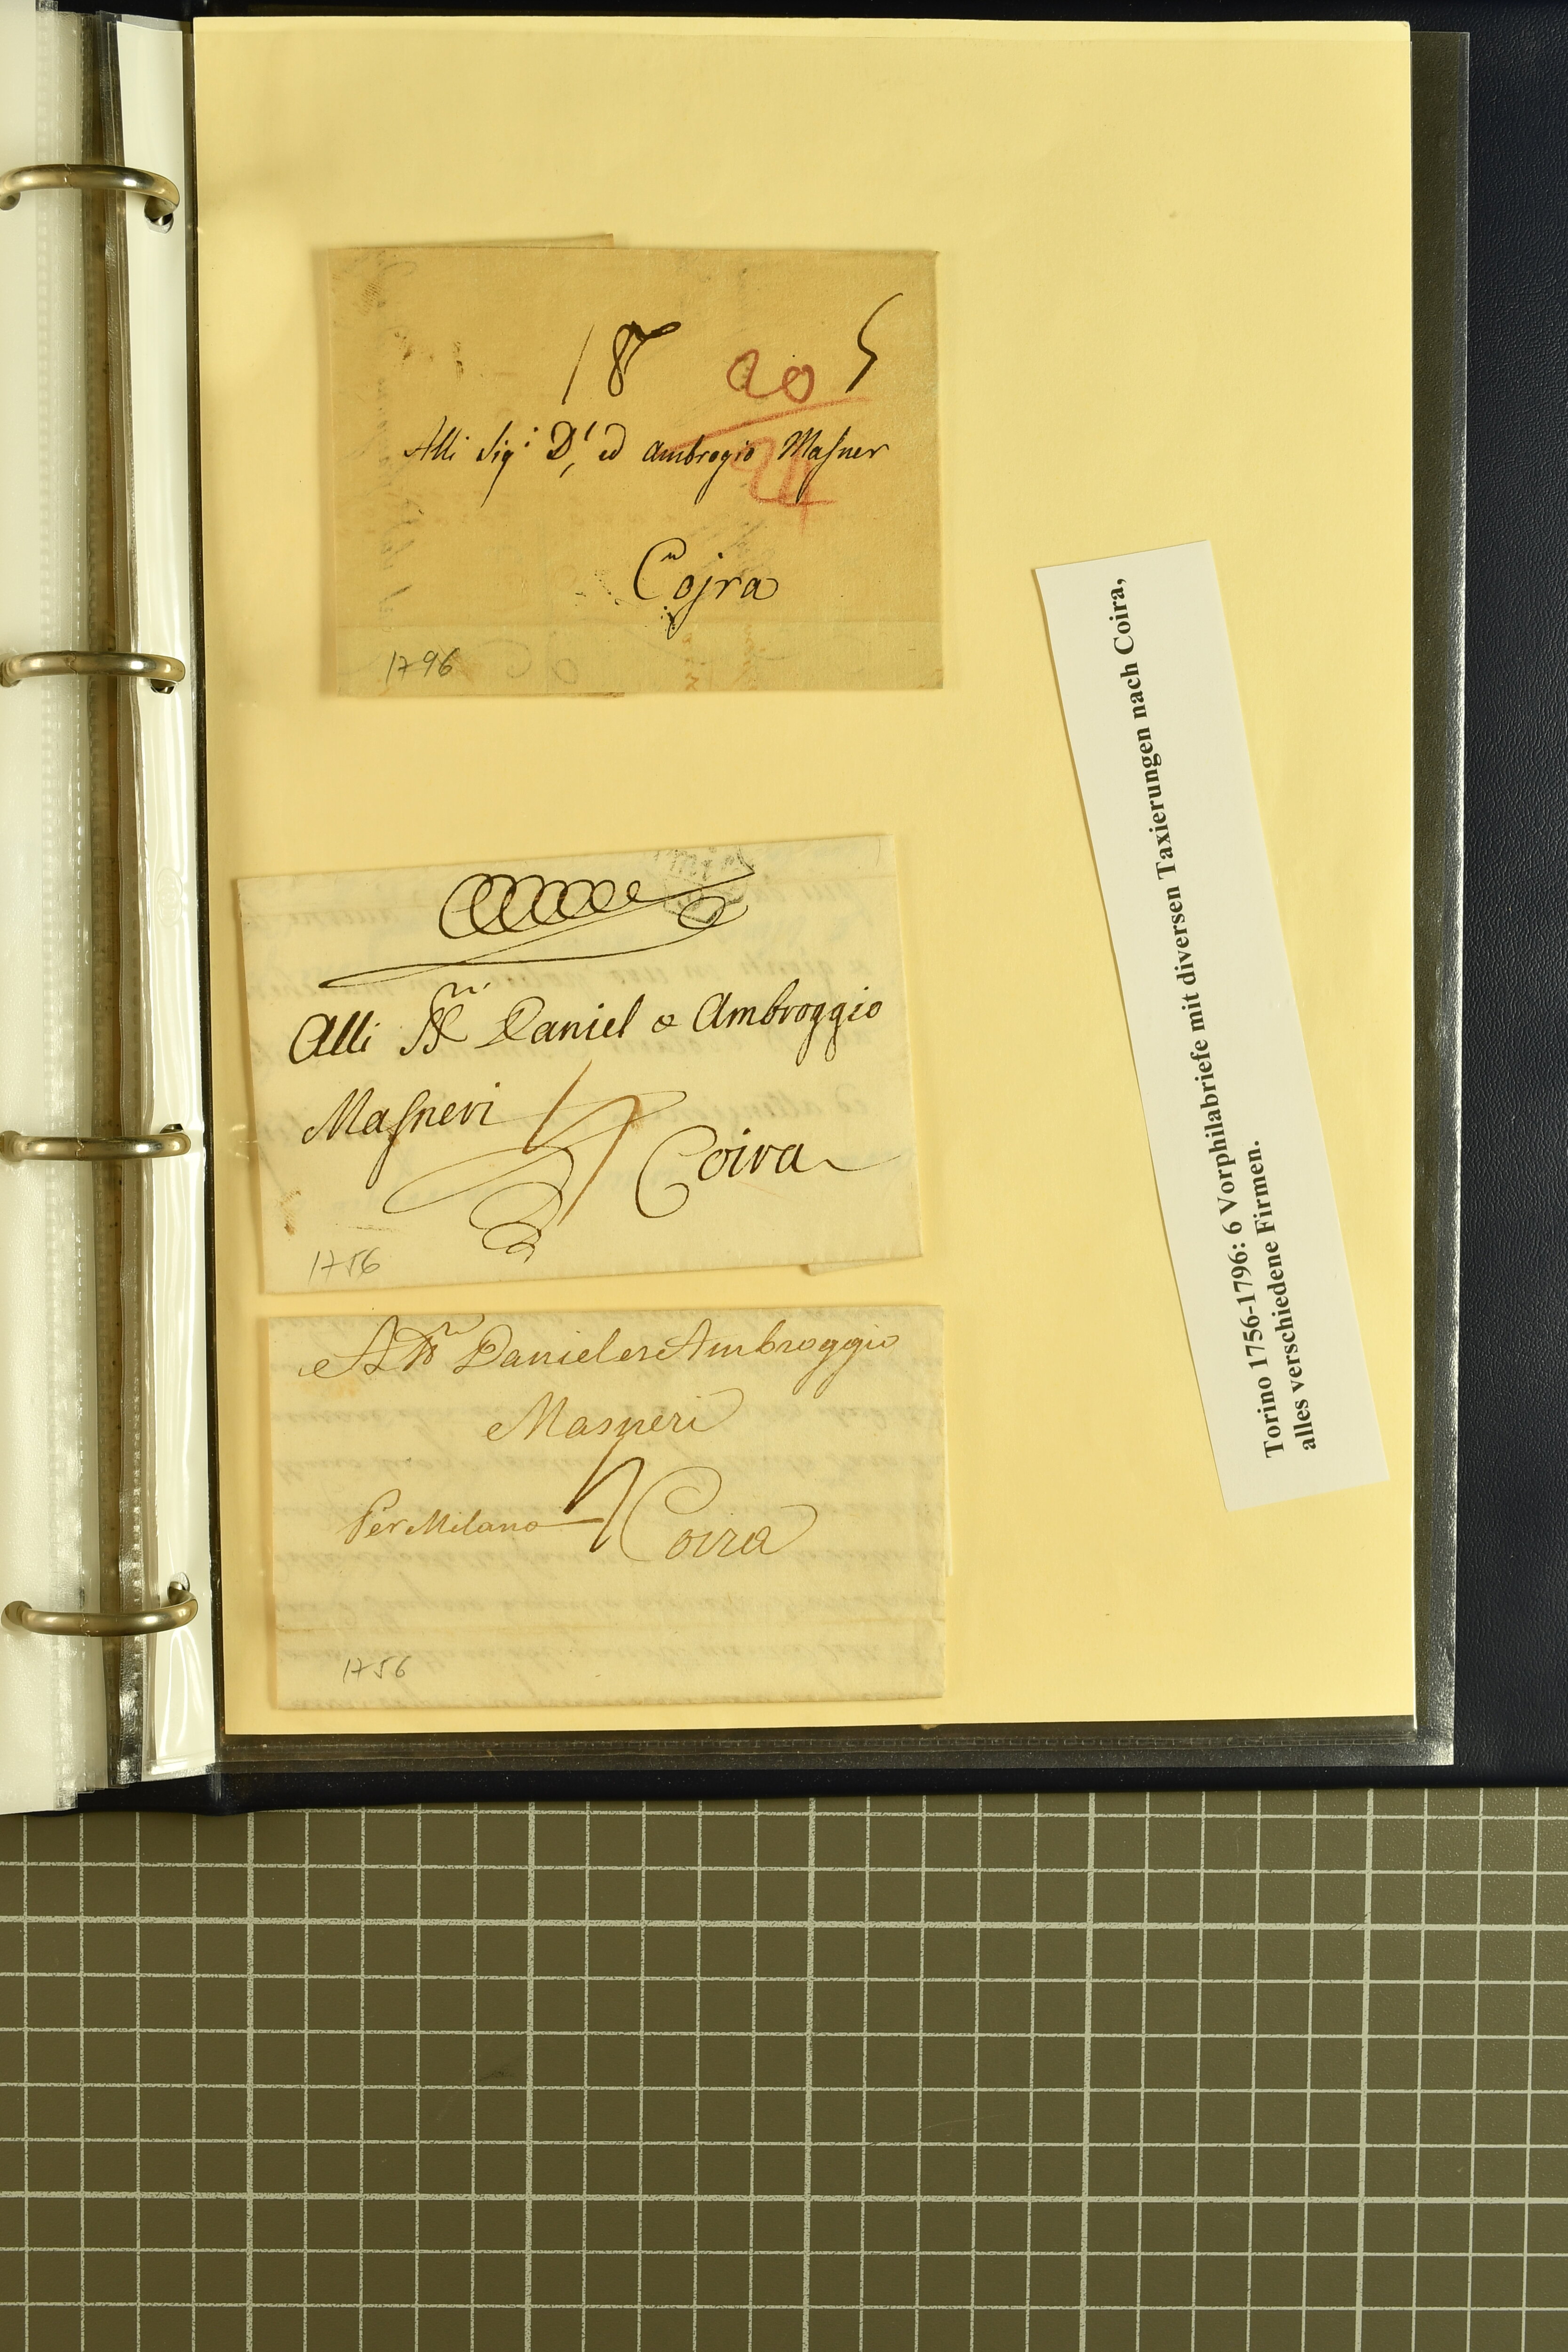 18 20 5
Alli Sigi Di ed Ambrogio Masner
24
Cojra
1796
Alli SSri Daniel e Ambroggio
Masneri
Coira
1756
Daniel et Ambroggio
Masneri
Per Milano Coira
1756
Torino 1756-1796: 6 Vorphilabriefe mit diversen Taxierungen nach Coira,
alles verschiedene Firmen.